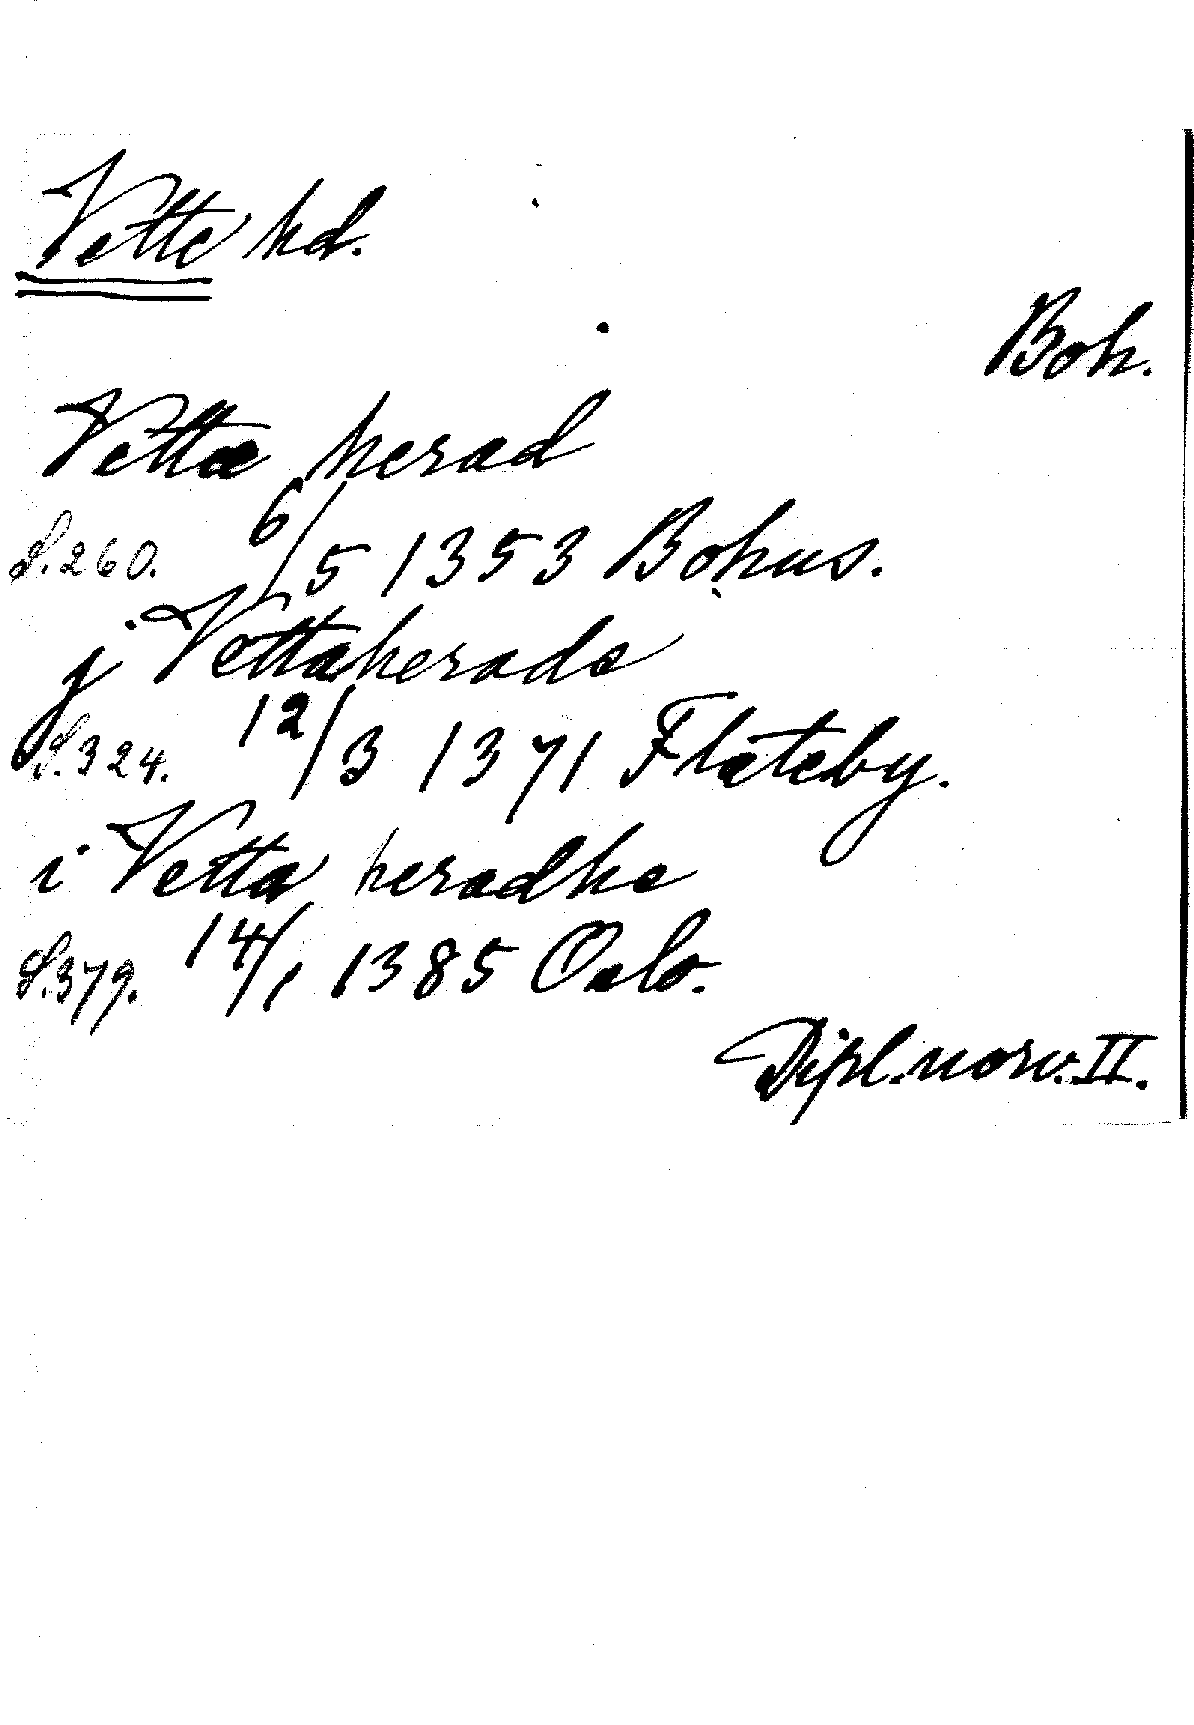 Vette hd.
Boh.
Vettæ herad
S.260. 6/5 1353 Bohus.
j Vettæherade
S.324. 12/3 1371 Flateby.
i Vetta heradhe
S.379. 14/1 1385 Oslo.
Dipl. norv. II.